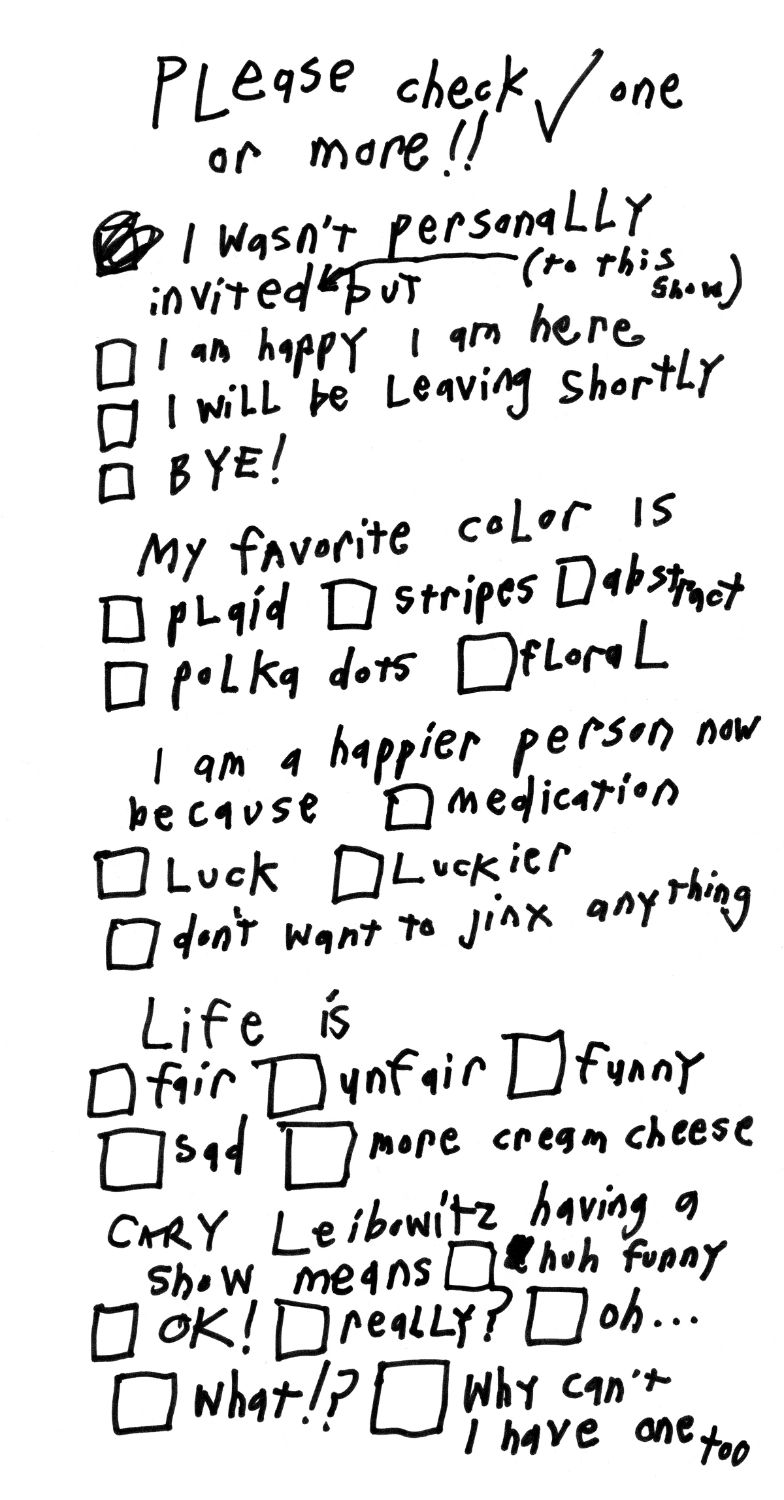 PLease check ✓ one
or more!!
I wasn't personaLLY
invited but (to this show)
☐ I am happy I am here
☐ I wiLL be Leaving shortLY
☐ BYE!
My fAvorite coLor IS
☐ pLaid ☐ stripes ☐ abstract
☐ poLka dots ☐ fLoraL
I am a happier person now
because ☐ medication
☐ Luck ☐ Luckier
☐ don't want to jinx anything
Life is
☐ fair ☐ unfair ☐ funny
☐ sad ☐ more cream cheese
CARY Leibowitz having a
show means ☐ huh funny
☐ OK! ☐ reaLLY? ☐ oh...
☐ what!? ☐ Why can't
I have one too